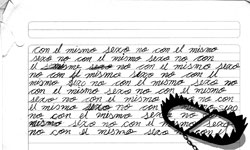 con el mismo sexo no con el mismo
sexo no con el mismo sexo no con
el mismo sexo no con el mismo sexo
no con el mismo sexo no con el
mismo sexo no con el mismo sexo no
sexo no con el mismo sexo no con el
mismo sexo no con el mismo
no con el mismo sexo no con el
mismo sexo no con el mismo sexo
con el mismo sexo con el